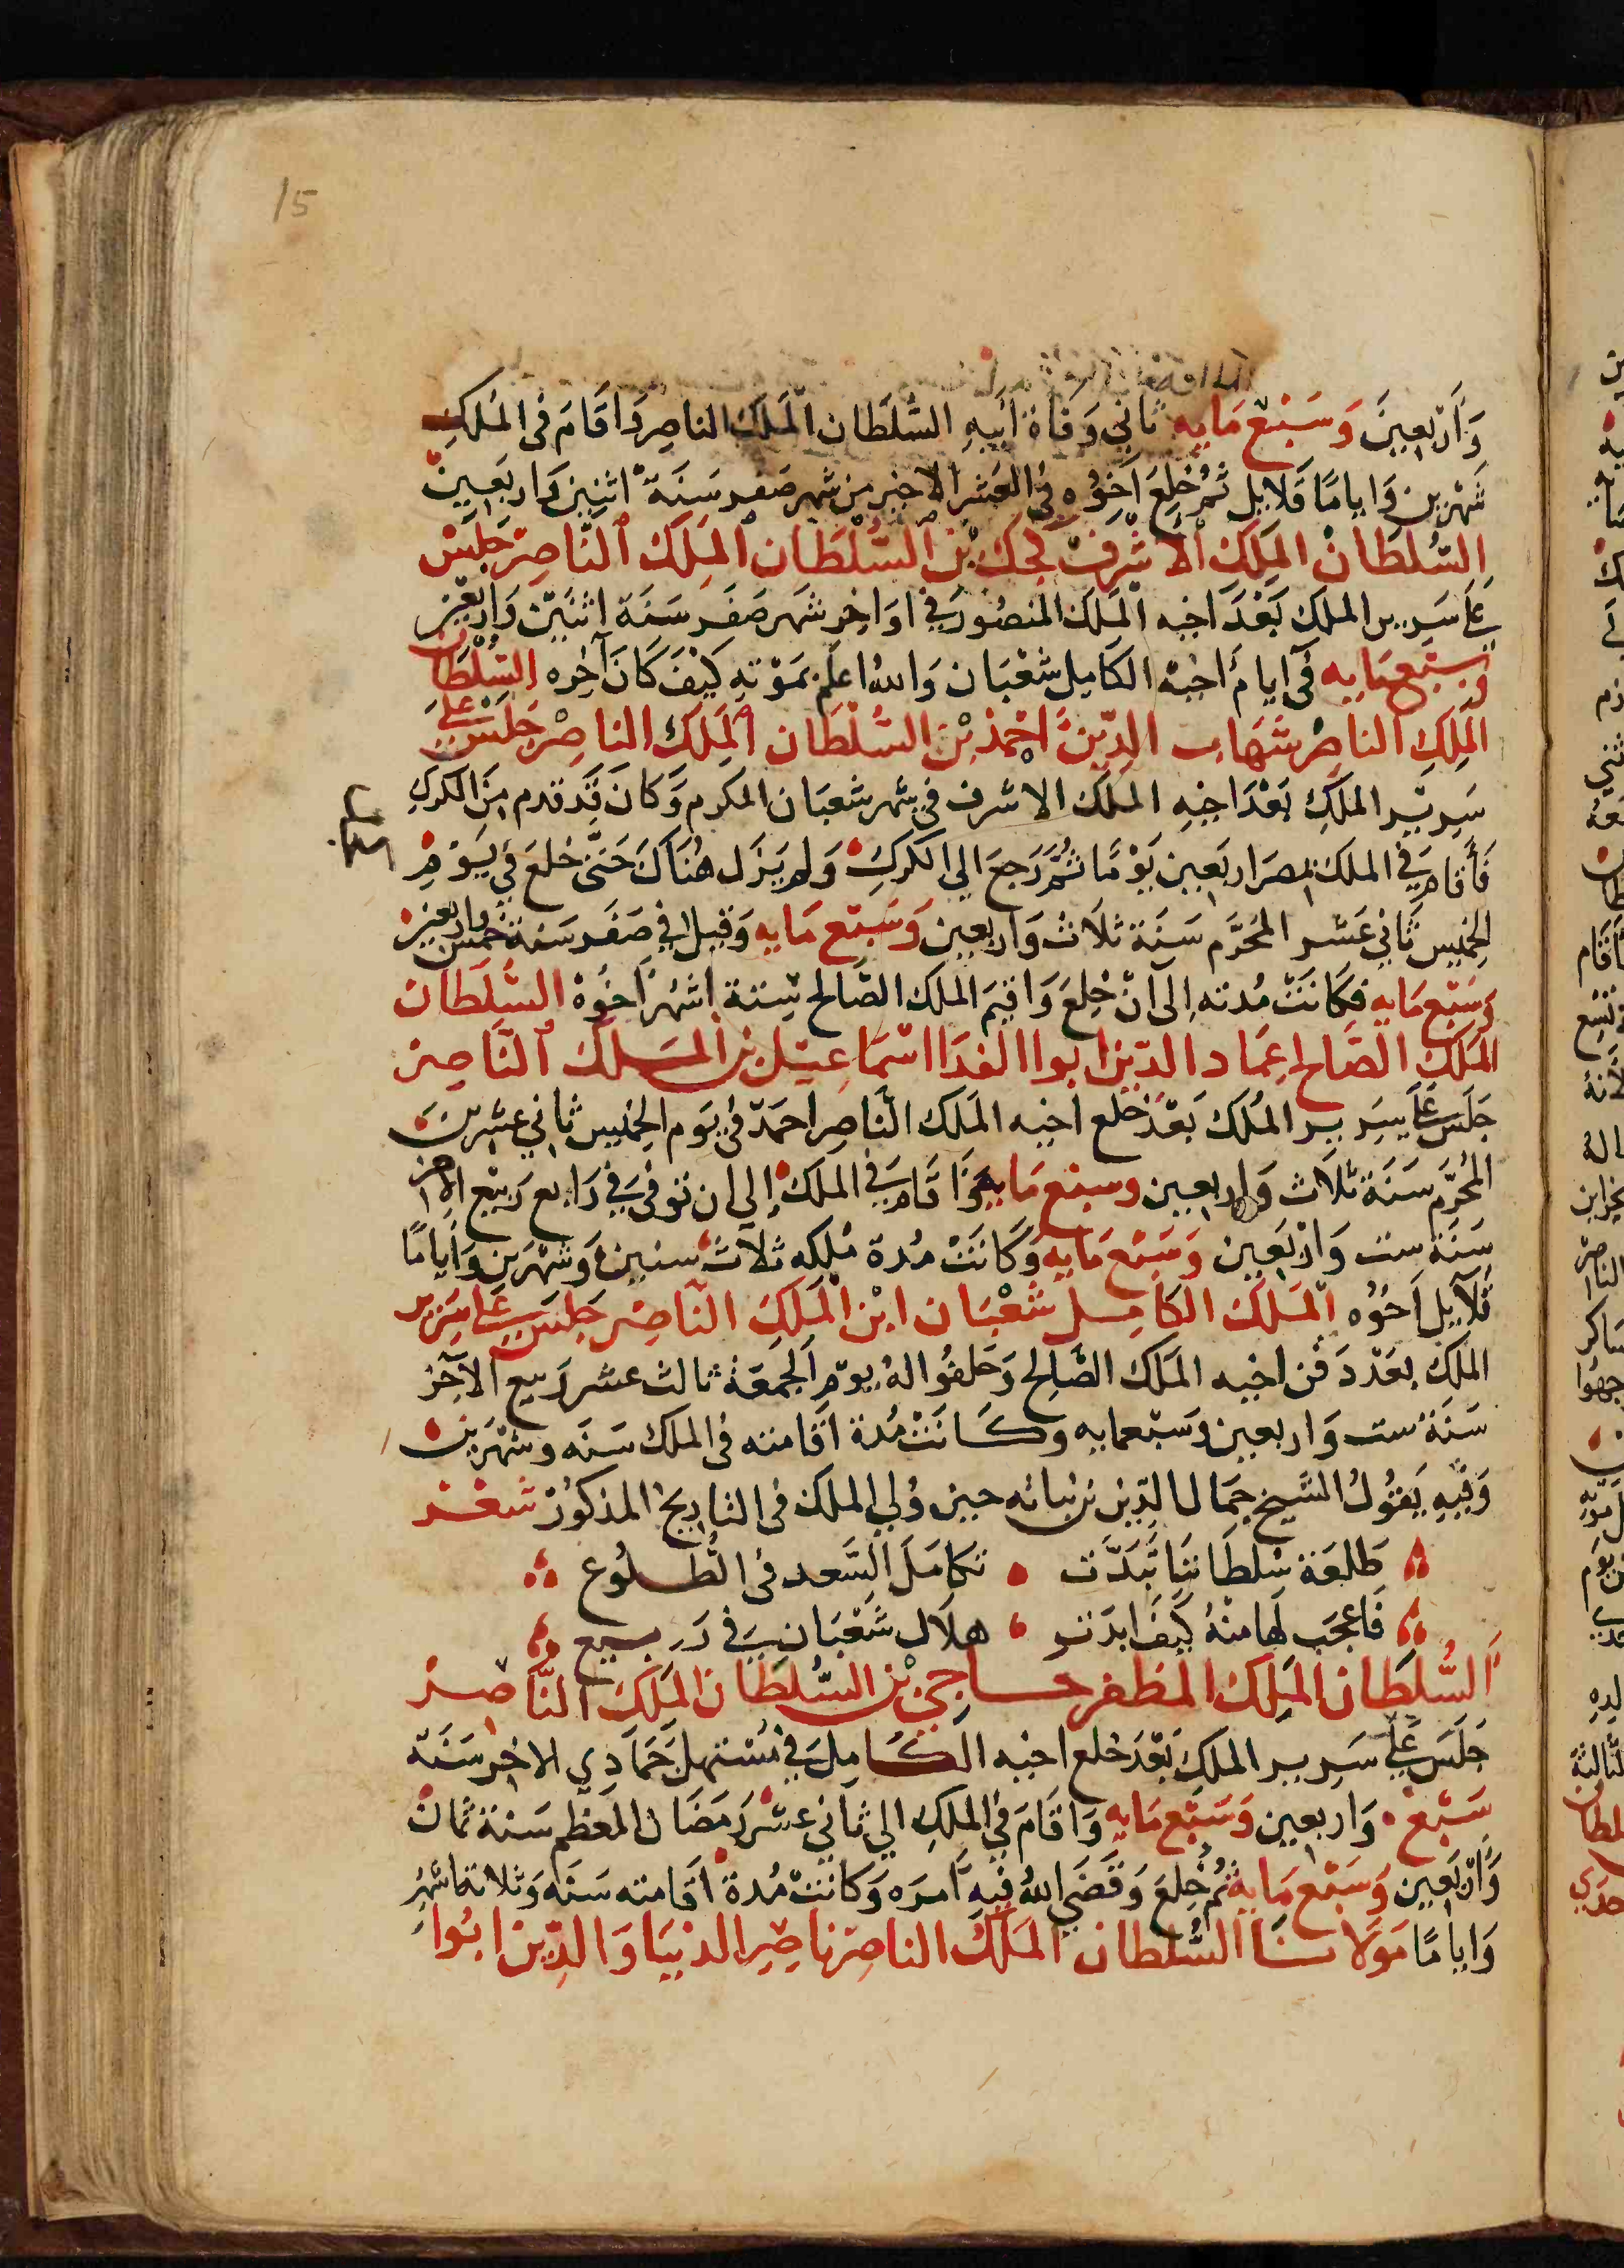 15
وَأَرْبَعِينَ وَسَبْعِ مَايه ثاني وَفاة أبيهِ السُّلطَان المَلك الناصِر وَاقَامَ فى المُلكِ
شهْرين وَايامًا قلايل ثُمَّ خُلِعَ اَخُوُه فى العَشر الاخير من شهر صَفر سَنَة اثنين وَاربَعين
السُّلطَانْ المَلِكَ الأشرَفْ كجك بْن السُّلْطَان المَلِكَ النَّاصِرْ جَلسَ
عَلى سَرير الملك بَعْدَ اخيه المَلك المنصُور فِي اوَاخِر شهر صَفَر سَنَة اثنَيْن وَاربَعين
وَسَبْعمَايه فِى ايام أخيهْ الكامِل شعْبَان وَاللهُ اعلَم بمَوْتهِ كيْفَ كَانَ آخِره السُّلْطَان
المَلِكِ الناصِرْ شهَاب الدِّينْ احْمَد بْن السُّلْطَان المَلِك الناصِرْ جَلسَ عَلَى
سَرير الملكِ بَعْدَ اخيهِ المَلك الاشرف فى شهر شعبَان المكرم وَكانَ قَدْ قدم مِنَ الكركِ
فَأقامَ فِي الملك بمصرَ اربَعين يَوْمًا ثُمَّ رَجعَ الي الكركِ وَلم يَزَل هُنَاكَ حَتَّى خلعَ فِي يَوْمِ
الخميس ثَاني عَشر المُحَرَّم سَنَة ثلاث وَاربعين وَسَبْع مَايه وَقيل فِي صَفَر سَنة خمس واربعين
وَسَبْع مَايه فكَانَتْ مُدته إلى انْ خُلِعَ وَاقيمَ الملك الصَّالح سِتة اشهُر اَخُوهْ السُّلطَان
المَلك الصَّالح عِمَاد الدّين ابوا الفدَا اسْمَاعِيل بن المَلك النَّاصِر
جَلسَ عَلى سَرير المُلك بَعْدَ خلع اخيه المَلك النَّاصِر احمَدْ فى يَوم الخميس ثاني عشرين
المُحَرَّم سَنَة ثلاث وَاربعين وسبع مَايه وَاقامَ فِي الملك إلي ان توفى فِي رَابع رَبيْع الآخر
سَنَة ست وَارْبَعين وَسَبْع مَايه وَكَانَتْ مُدة مُلكه ثلاث سنين وَشهْرَين وَأيامًا
قلايل اَخُوُه المَلكْ الكَامِل شَعْبَان ابْن المَلِكَ النَّاصِر جَلسَ عَلى سَرير
الملكِ بعَدْ دَفن اخيه المَلك الصَّالح وَحَلفُوا لهُ يوْم الجمَعَة ثالث عشر رَبيع الآخر
سَنَة ست وَاربعين وسَبْعمايه وكَانَتْ مُدة اقامته فى الملك سَنَه وشهْرَين
وَفيهِ يَقُولُ الشيخ جَمَال الدّين بن نباته حين وُلي الملك فى التاريخ المذكورْ شعْر
طَلعَة سُلطَاننا تَبَدَّت • تكامَلَ السَّعد فى الطُّلُوع
فَاعجَب لهَا منْهُ كَيفَ ابدَت • هلال شَعْبَان فِي رَبيع
السُّلطَان المَلِك المظفر حاجي بْن السُّلطَان المَلك النَّاصِر
جَلسَ عَلى سَرير الملكِ بَعْدَ خلع اخيه الكَامِل فِي مُسْتهل جَمَادي الاخر سَنَة
سَبْع وَاربعين وَسَبْع مَايه وَاقَامَ فِي الملكِ الي ثاني عشر رَمَضَان المعَظم سَنة ثمان
وَأرْبَعين وَسَبْع مَايه ثُم خُلِعَ وَقَضَى اللهُ فيهِ أمرَه وَكانَتْ مُدة اقامته سَنَه وَثلاثة اشهُر
وَايامًا مَولانَا السُّلطان المَلك الناصِر ناصِر الدنيَا وَالدِّين ابُوا